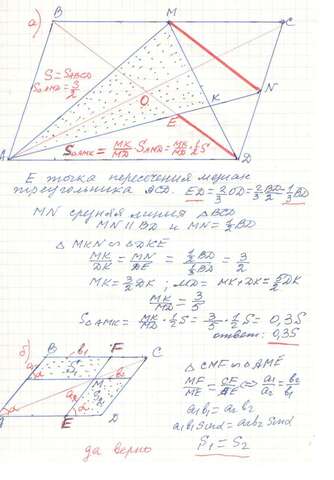 а)
B M C
S = S_ABCD
S_ΔAMD = 3/2
O
K N
E
A D
S_ΔAMK = MK/MD · S_AMD = MK/MD · 1/2 S
E точка пересечения медиан
треугольника ACD. ED = 2/3 OD = 2/3 BD/2 = 1/3 BD
MN средняя линия △BCD
MN ∥ BD и MN = 1/2 BD
△ MKN ∽ △DKE
MK/DK = MN/DE = (1/2 BD)/(1/3 BD) = 3/2
MK = 3/2 DK; MD = MK + DK = 5/2 DK
MK/MD = 3/5
S_ΔAMK = MK/MD · 1/2 S = 3/5 · 1/2 S = 0,3S
ответ: 0,3S
б)
B b₁ F C
S₁
M
a₂ S₂
α α
E D
△ CMF ∽ △AME
MF/ME = CF/AE ⇔ a₁/a₂ = b₂/b₁
a₁b₁ = a₂b₂
a₁b₁ sinα = a₂b₂ sinα
S₁ = S₂
да верно